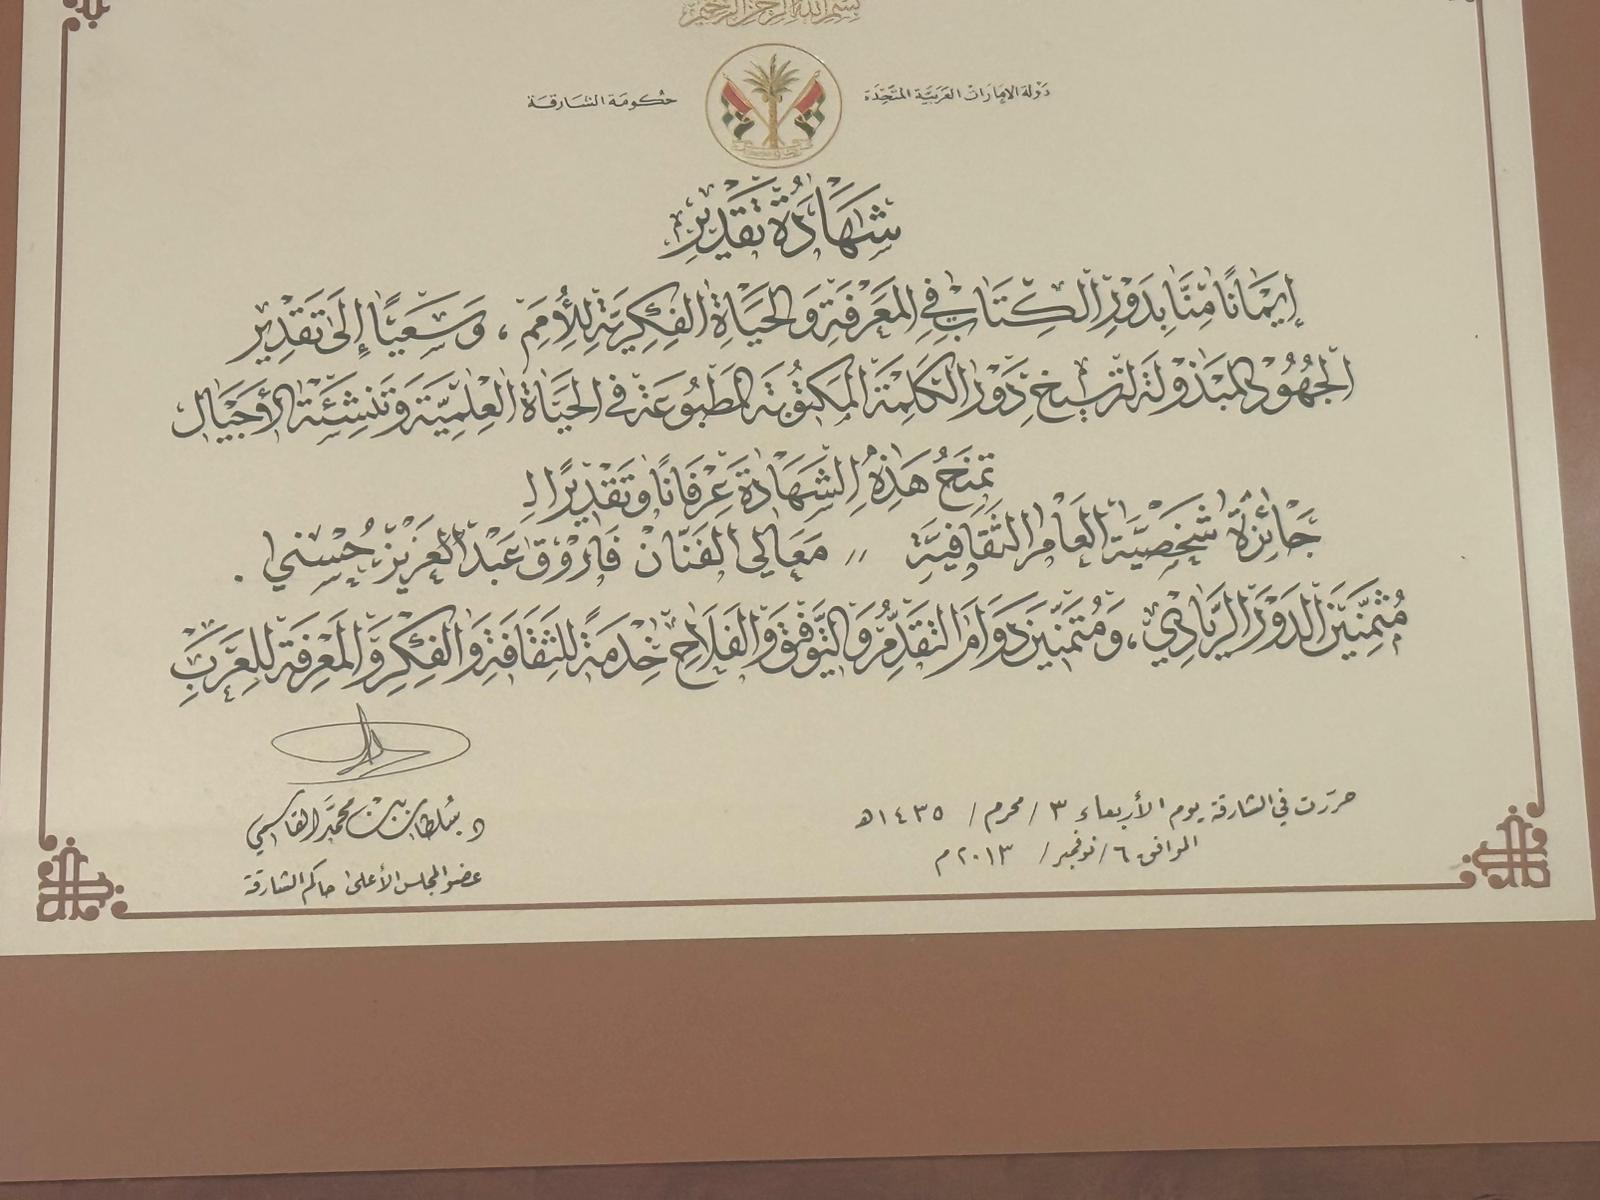 بسم الله الرحمن الرحيم
دولة الإمارات العربية المتحدة
حكومة الشارقة
شهادة تقدير
إيمانًا منا بدور الكتاب في المعرفة والحياة الفكرية للأمم ، وسعيًا إلى تقدير
الجهود المبذولة لترسيخ دور الكلمة المكتوبة المطبوعة في الحياة العلمية وتنشئة الأجيال
تمنح هذه الشهادة عرفانًا وتقديرًا لـ
جائزة شخصية العام الثقافية ،، معالي الفنان فاروق عبد العزيز حسني .
مثمنين الدور الريادي ، ومتمنين دوام التقدم والتوفيق والفلاح خدمة للثقافة والفكر والمعرفة للعرب
حررت في الشارقة يوم الأربعاء ٣ / محرم / ١٤٣٥هـ
الموافق ٦ / نوفمبر / ٢٠١٣م
د. سلطان بن محمد القاسمي
عضو المجلس الأعلى حاكم الشارقة